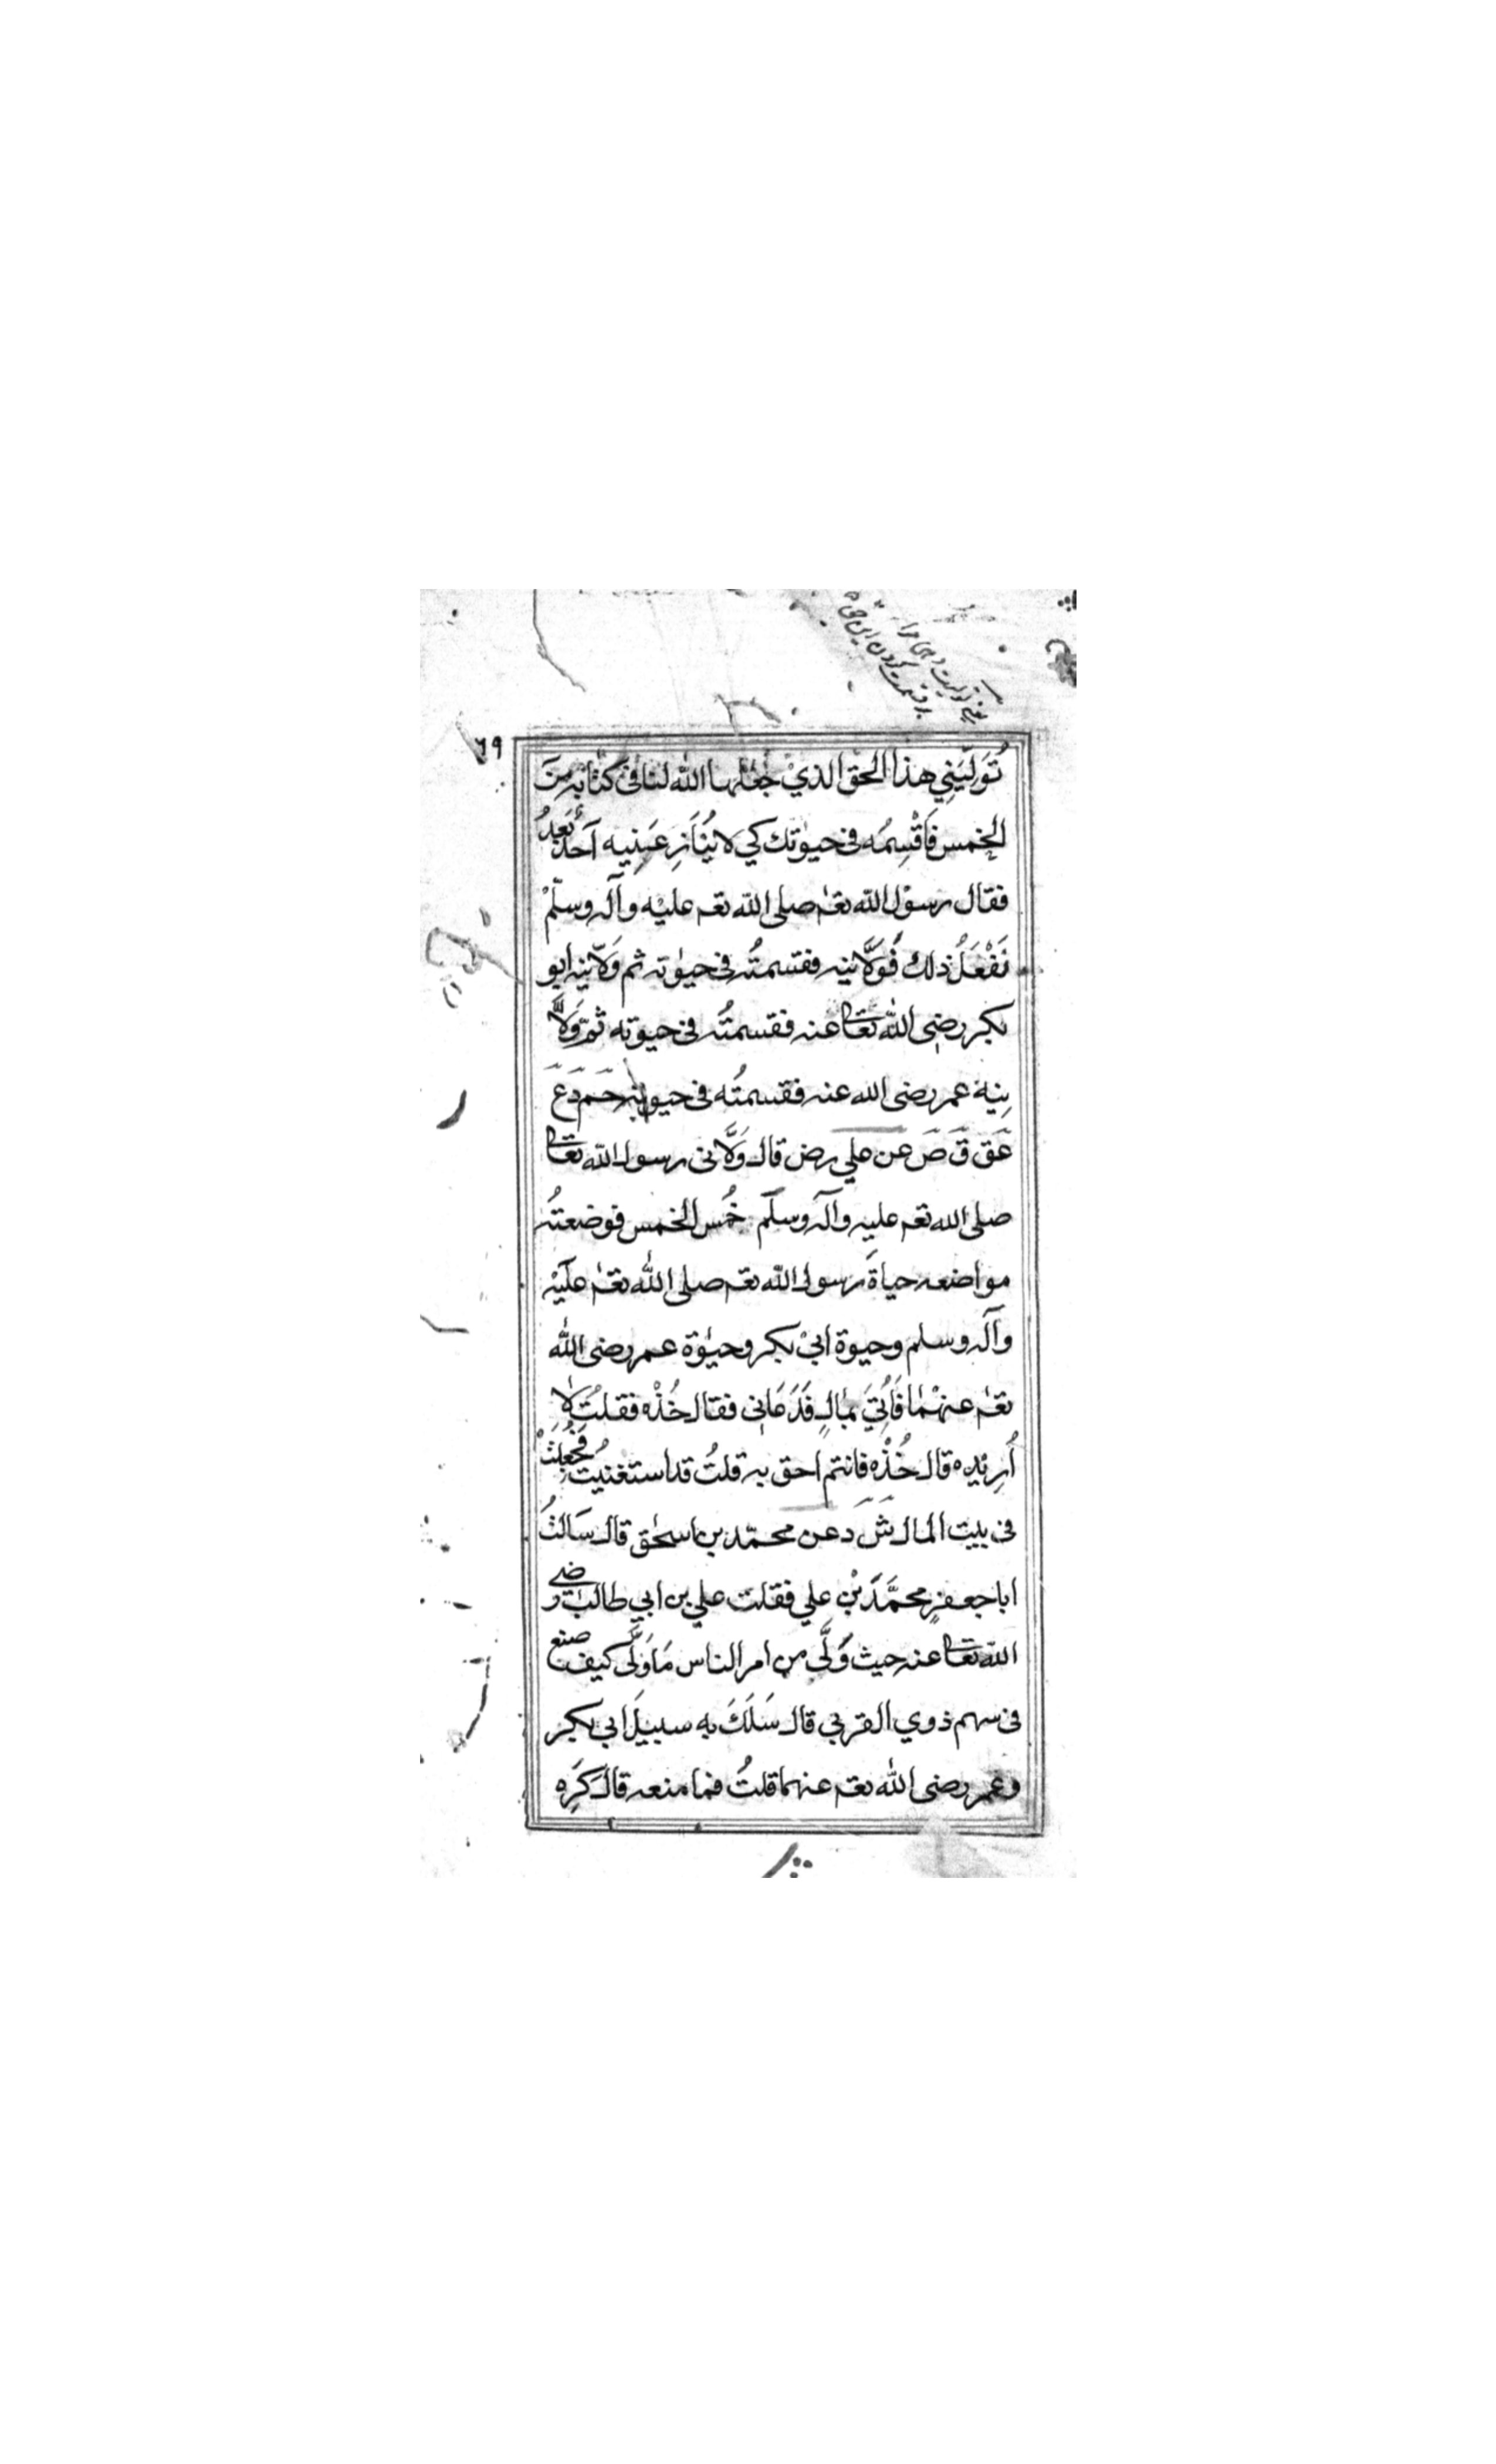 یعنی تولیت دهی مرا
بر قسمت کردن این حق
٦٩
تُوَلِّيَنِي هذا الحق الذيْ جَعَلها الله لنا في كتابه مِنَ
الخمس فَاَقْسِمُه في حيوٰتك كي لا يُنَازِعَنِيه اَحدٌ بَعدُ
فقال رسوْل الله تعٰم صلى الله تعم عليْه وآله وسلّمْ
نَفْعَلُ ذلك فَوَلَّانيه فقسمتُه في حيوٰته ثم وَلّانيه ابو
بكر رضي الله تعالى عنه فقسمتُه في حيوته ثمّ وَلَّا
نيه عمر رضي الله عنه فقسمتُه في حيوٰته حَم دَعَ
عَق قَ صَ عن علي رض قال وَلَّاني رسول الله تعالى
صلى الله تعم عليه وآله وسلّم خُمس الخمس فوضعتُه
مواضعه حياةَ رسول الله تعم صلى الله تعٰم عليْه
وآله وسلم وحيوة ابيْ بكر وحيٰوة عمر رضي الله
تعٰم عنهْمَا فَاُتِيَ بمالٍ فَدَعَاني فقال خُذْه فقلتُ لا
اُرِيْدِه قال خُذْه فانتم احق به قلتُ قد استغنيْتُ فَجُعِلَتْ
في بيت المال شَ د عن محمّد بن اسحٰق قال سَالتُ
ابا جعفرٍ محمَّدَ بْن علي فقلت علي بن ابي طالب رضي
الله تعالى عنه حيث وَلَّى من امر الناس مَا وَلَّى كيف صنع
في سهم ذوي القربي قال سَلَكَ به سبيلَ ابي بكر
وعمر رضي الله تعم عنهما قلتُ فما منعه قال كَرِه